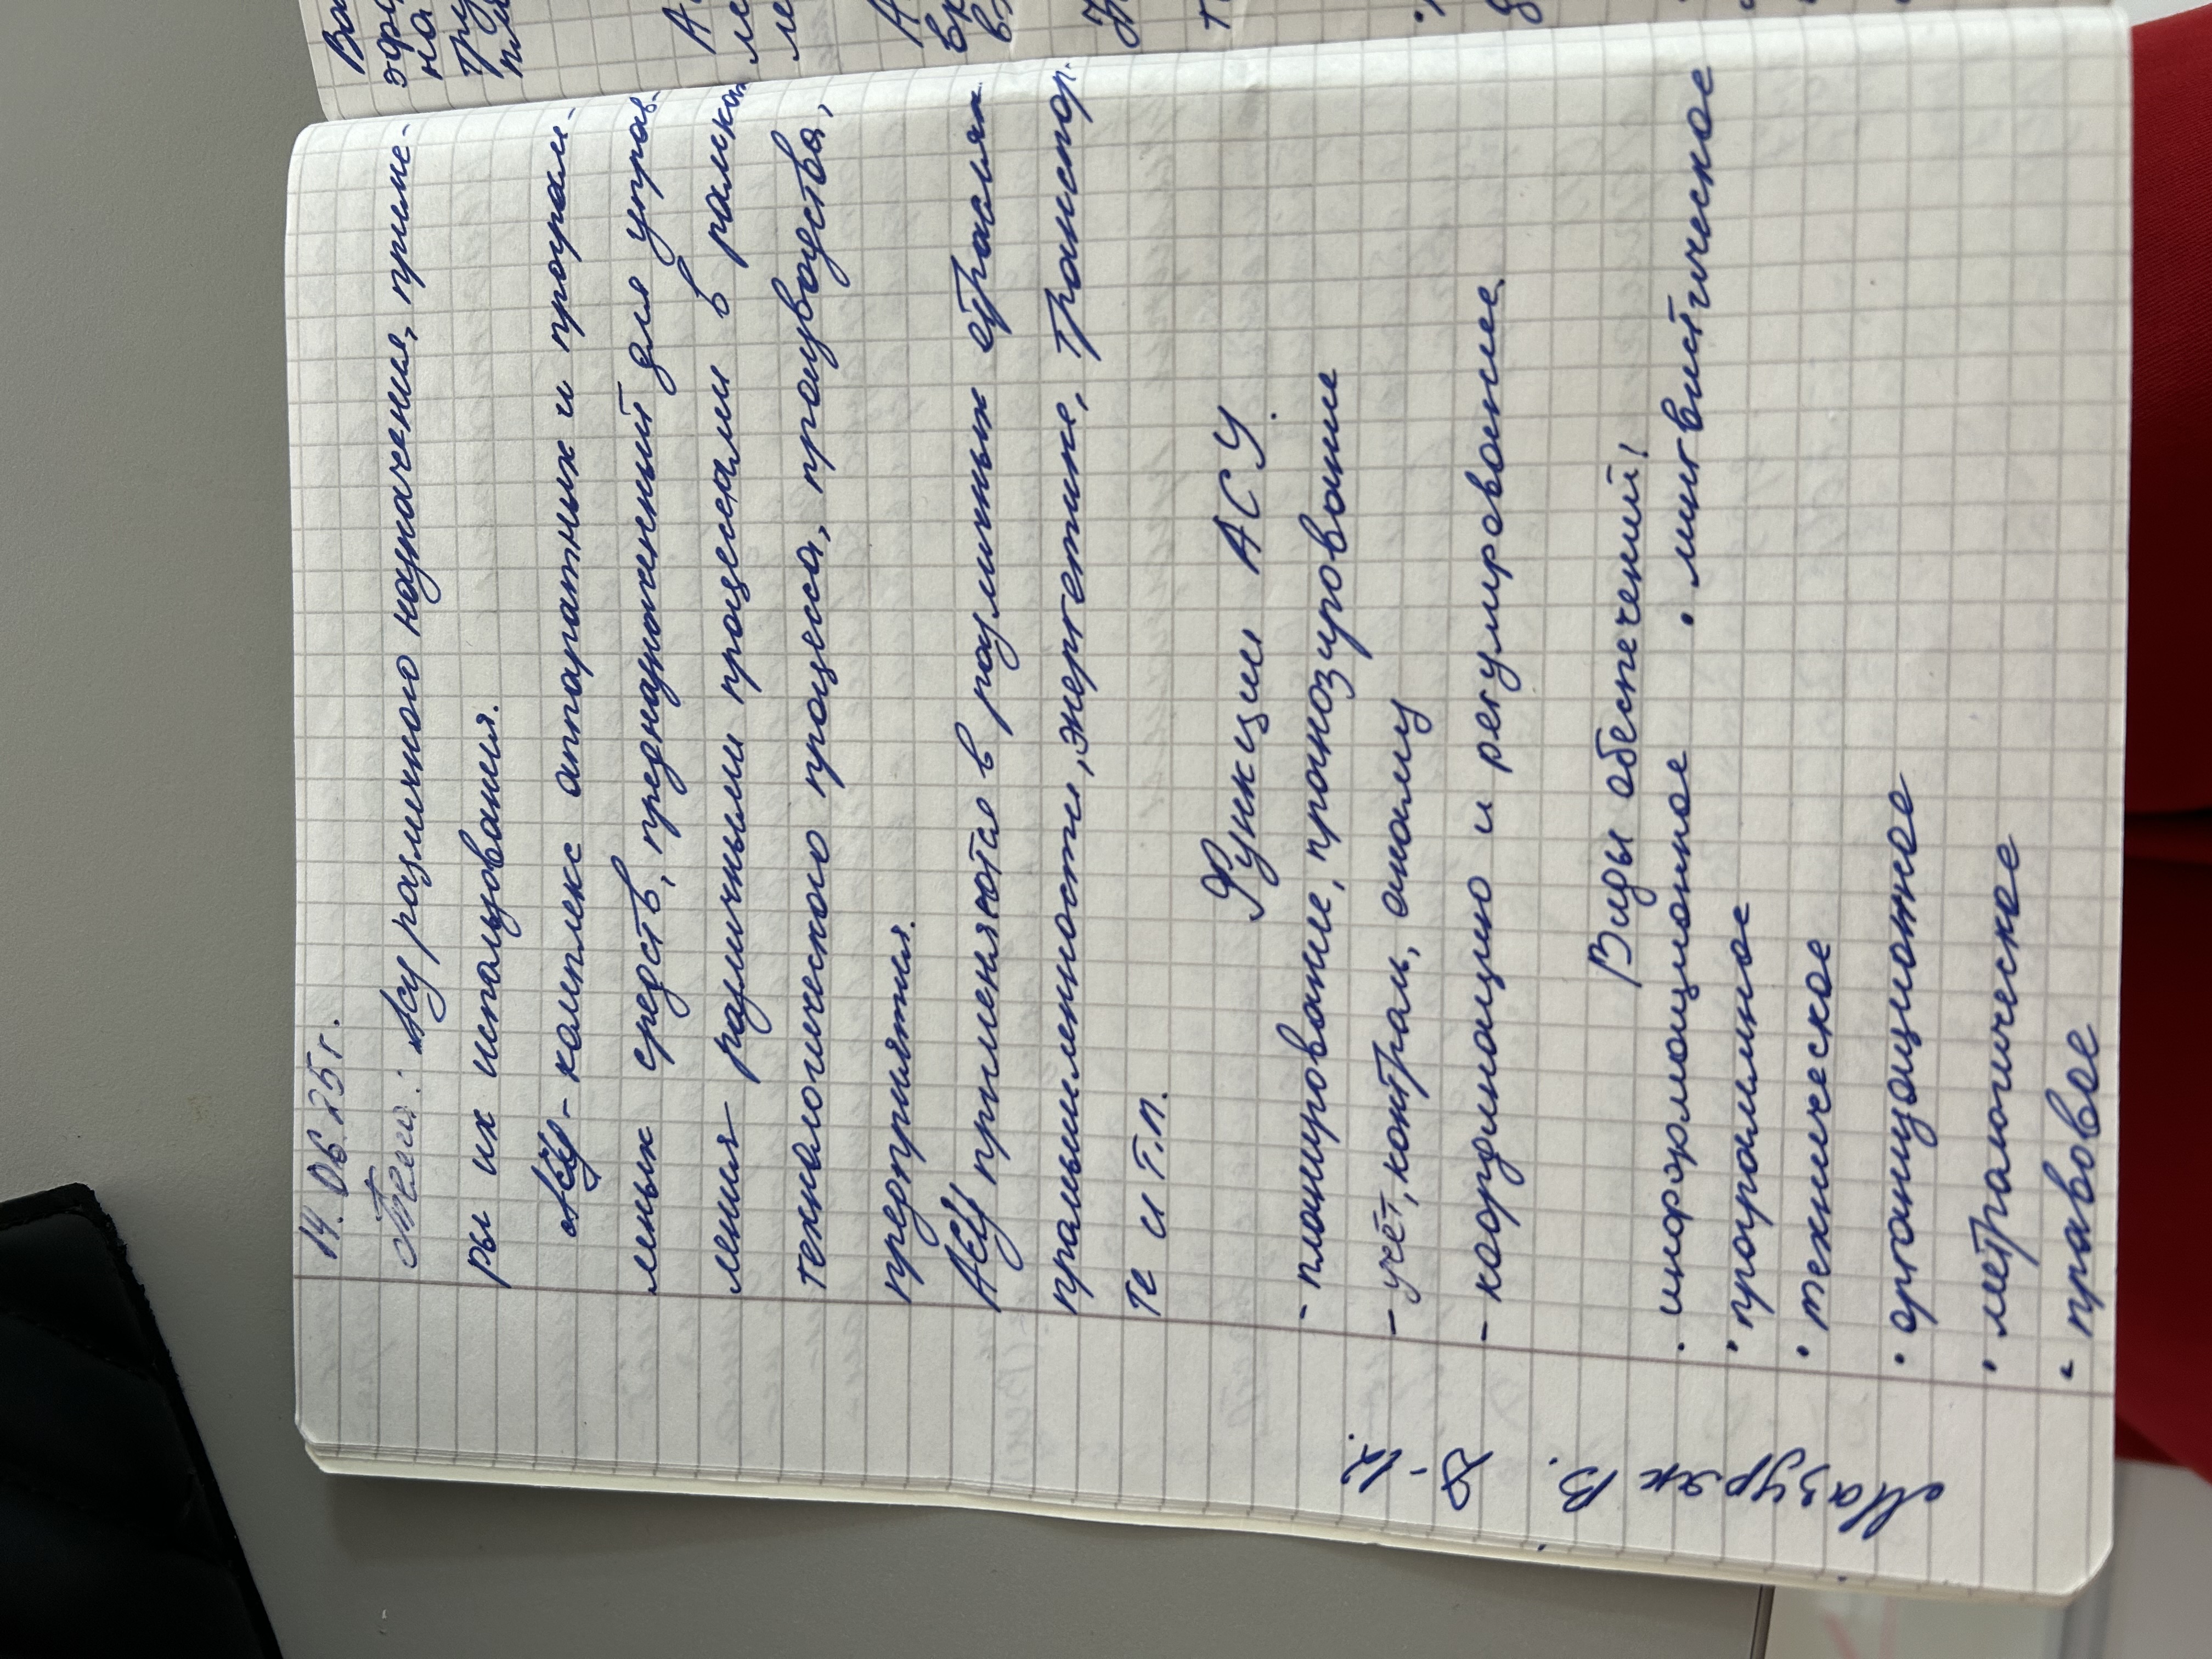 14.06.25г.
Тема: Асу различного назначения, приме-
ры их использования.
АСУ - комплекс аппаратных и програм-
мных средств, предназначенный для управ-
ления различными процессами в рамках
технологического процесса, производства,
предприятия.
АСУ применяются в различных отраслях
промышленности, энергетике, транспор.
те и т.п.
Функции АСУ.
- планирование, прогнозирование
- учёт, контроль, анализ
- координацию и регулирование
Виды обеспечений!
• информационное • лингвистическое
• програмное
• техническое
• организационное
• метрологическое
- правовое
Мазуряк В.
8-12.